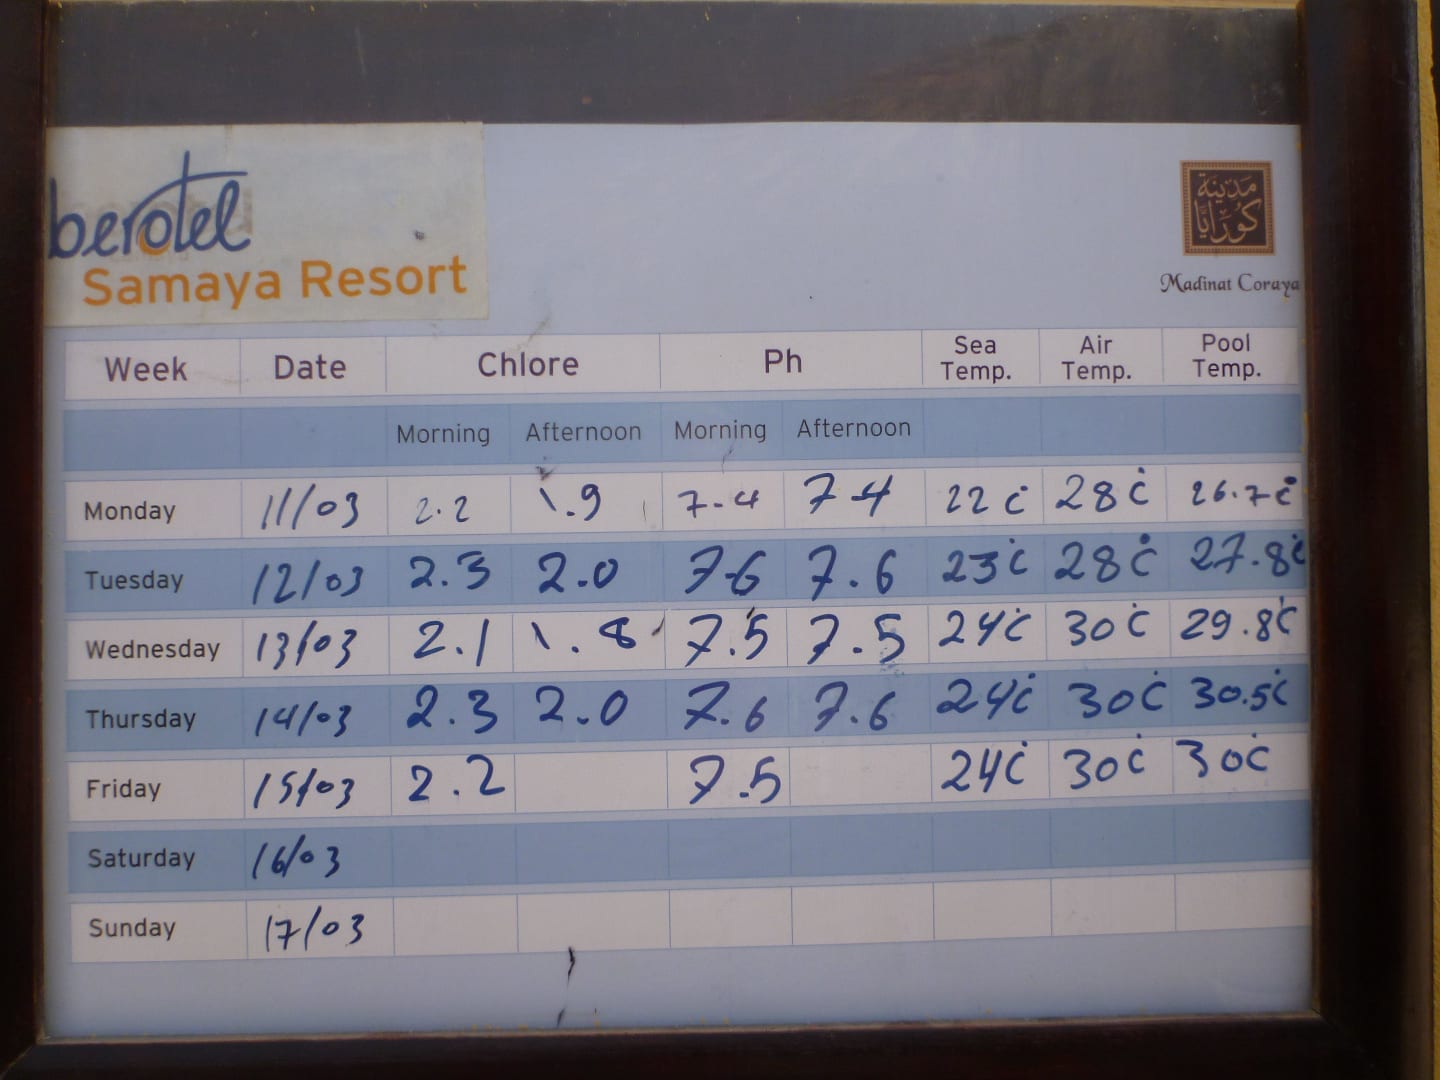 berotel
Samaya Resort
مدينة
كورايا
Madinat Coraya
Week Date Chlore Ph Sea Temp. Air Temp. Pool Temp.
Morning Afternoon Morning Afternoon
Monday 11/03 2.2 1.9 7.4 7.4 22 c 28 c 26.7 c
Tuesday 12/03 2.3 2.0 7.6 7.6 23 c 28 c 27.8 c
Wednesday 13/03 2.1 1.8 7.5 7.5 24 c 30 c 29.8 c
Thursday 14/03 2.3 2.0 7.6 7.6 24 c 30 c 30.5 c
Friday 15/03 2.2 7.5 24 c 30 c 30 c
Saturday 16/03
Sunday 17/03